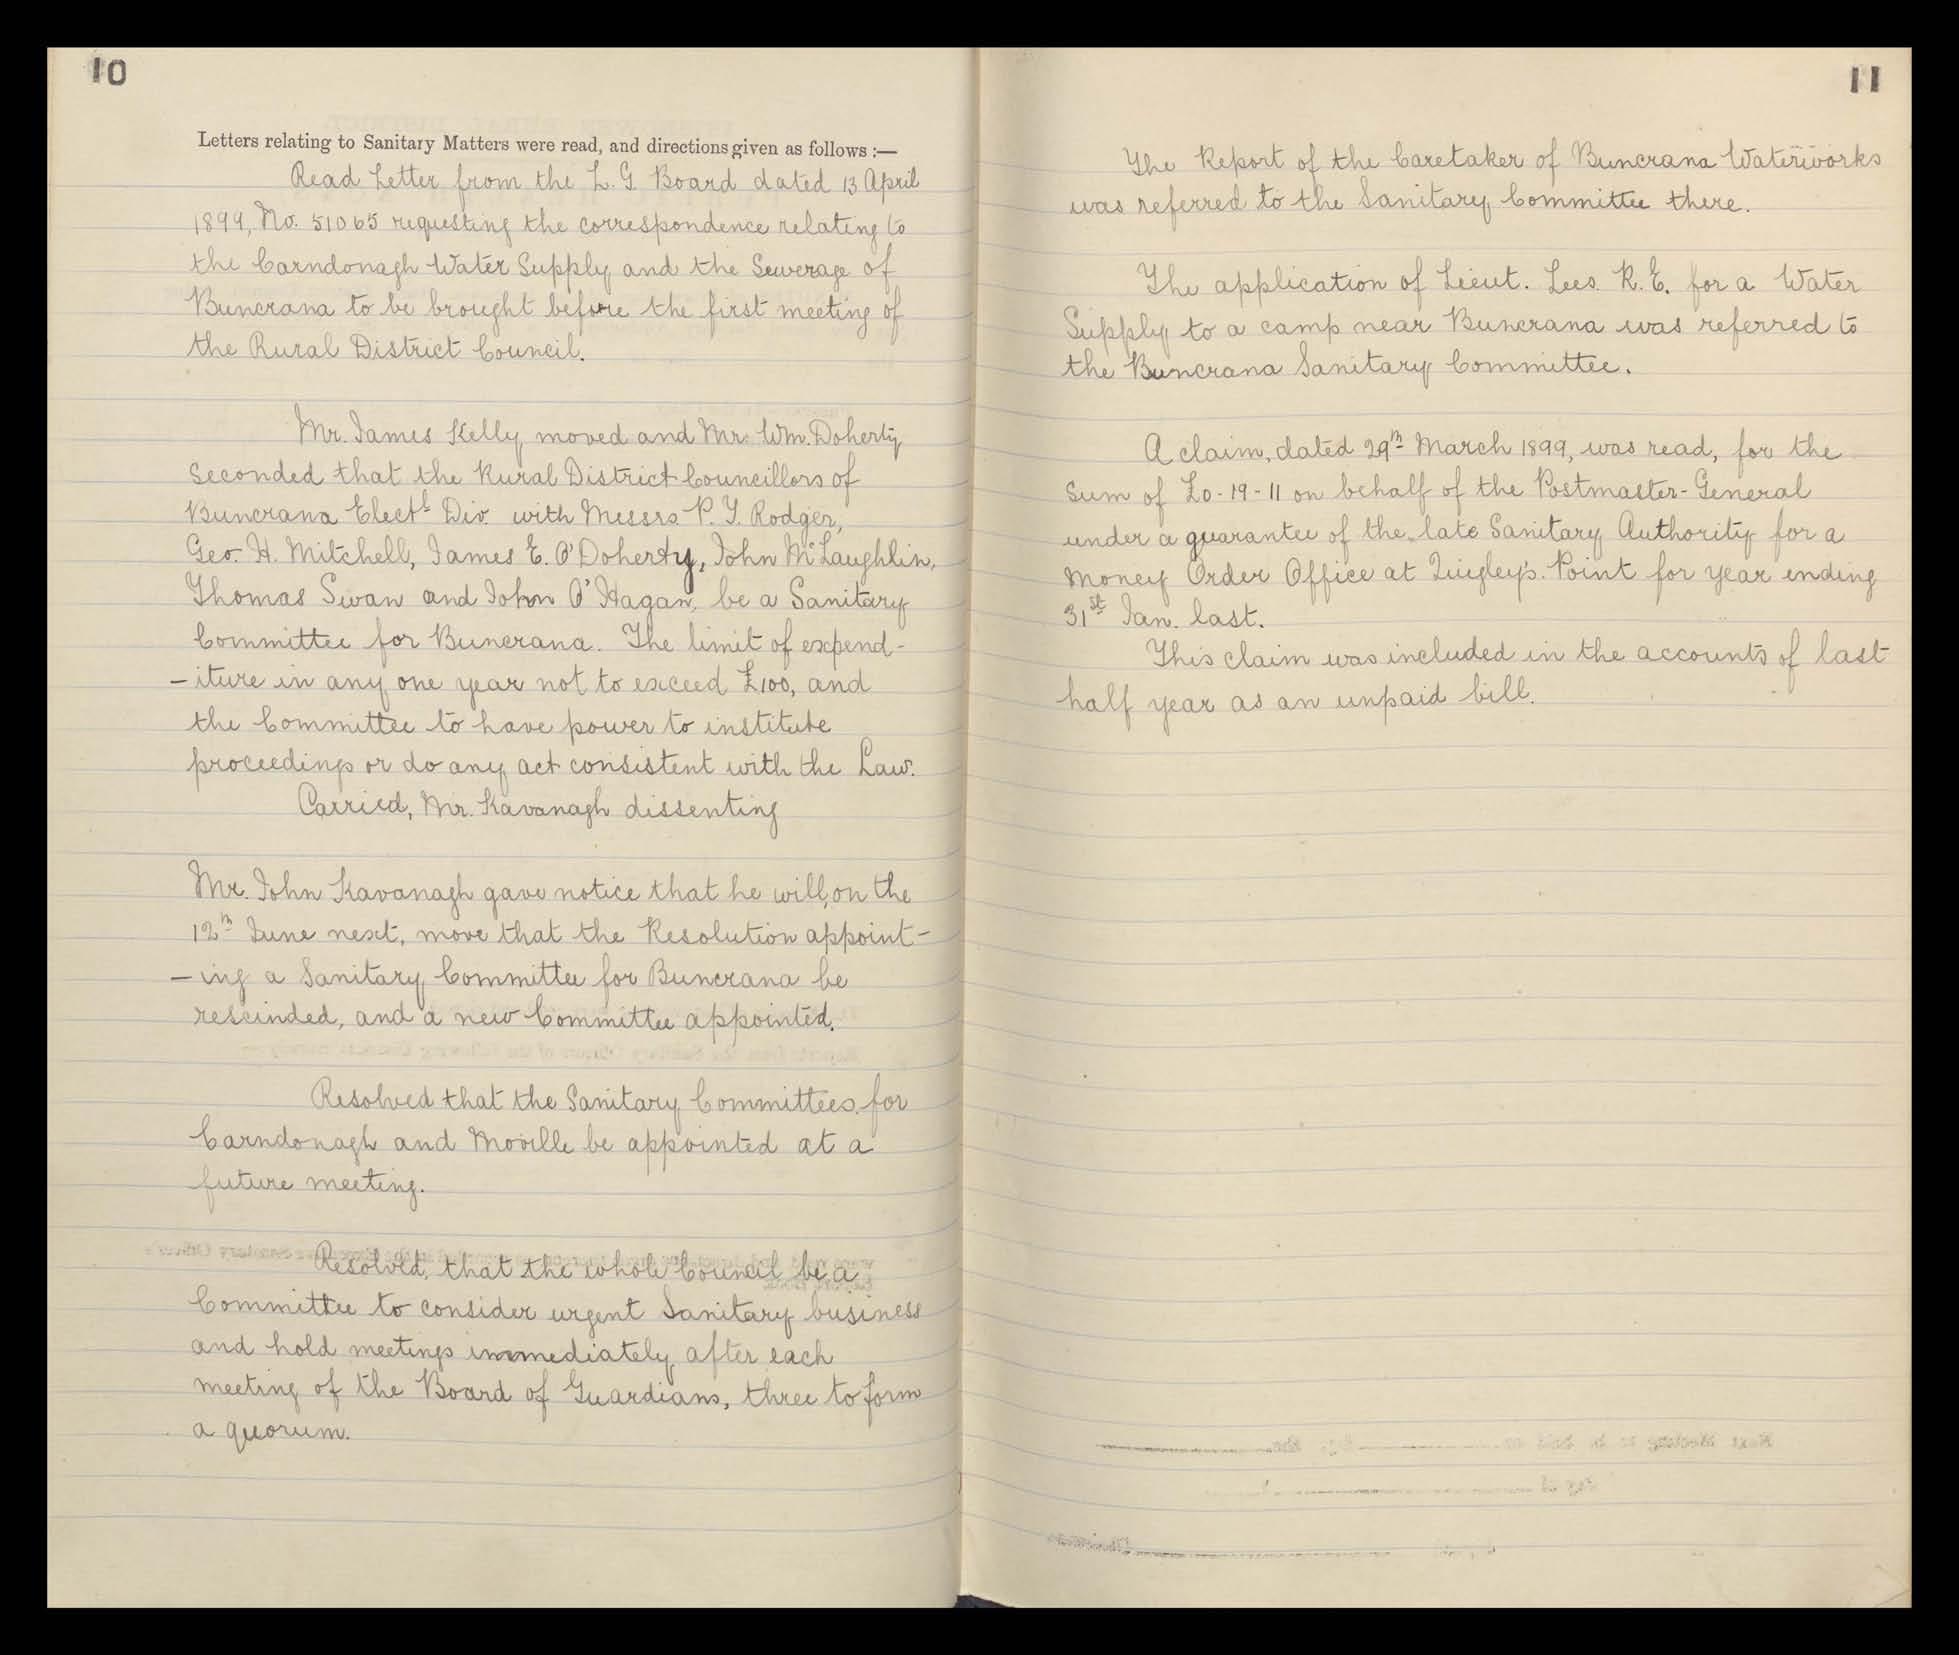 10
Letters relating to Sanitary Matters were read, and directions given as follows :—
Read Letter from the L. G. Board dated 13 April
1899, No. 51065 requesting the correspondence relating to
the Carndonagh Water Supply and the Sewerage of
Buncrana to be brought before the first meeting of
the Rural District Council.
Mr. James Kelly moved and Mr. Wm. Doherty
seconded that the Rural District Councillors of
Buncrana Electl Div. with Messrs. P. T. Rodger,
Geo. H. Mitchell, James E. O'Doherty, John McLaughlin,
Thomas Swan and John O'Hagan, be a Sanitary
Committee for Buncrana. The limit of expend-
-iture in any one year not to exceed £100, and
the Committee to have power to institute
proceedings or do any act consistent with the Law.
Carried, Mr. Kavanagh dissenting
Mr. John Kavanagh gave notice that he will, on the
12th June next, move that the Resolution appoint-
-ing a Sanitary Committee for Buncrana be
rescinded, and a new Committee appointed.
Resolved that the Sanitary Committees for
Carndonagh and Moville be appointed at a
future meeting.
Resolved, that the whole Council be a
Committee to consider urgent Sanitary business
and hold meetings immediately after each
meeting of the Board of Guardians, three to form
a quorum.
11
The Report of the Caretaker of Buncrana Waterworks
was referred to the Sanitary Committee there.
The application of Lieut. Lees. R. E. for a Water
Supply to a camp near Buncrana was referred to
the Buncrana Sanitary Committee.
A claim, dated 29th March 1899, was read, for the
sum of £0-19-11 on behalf of the Postmaster-General
under a guarantee of the late Sanitary Authority for a
Money Order Office at Quigley's Point for year ending
31st Jan. last.
This claim was included in the accounts of last
half year as an unpaid bill.